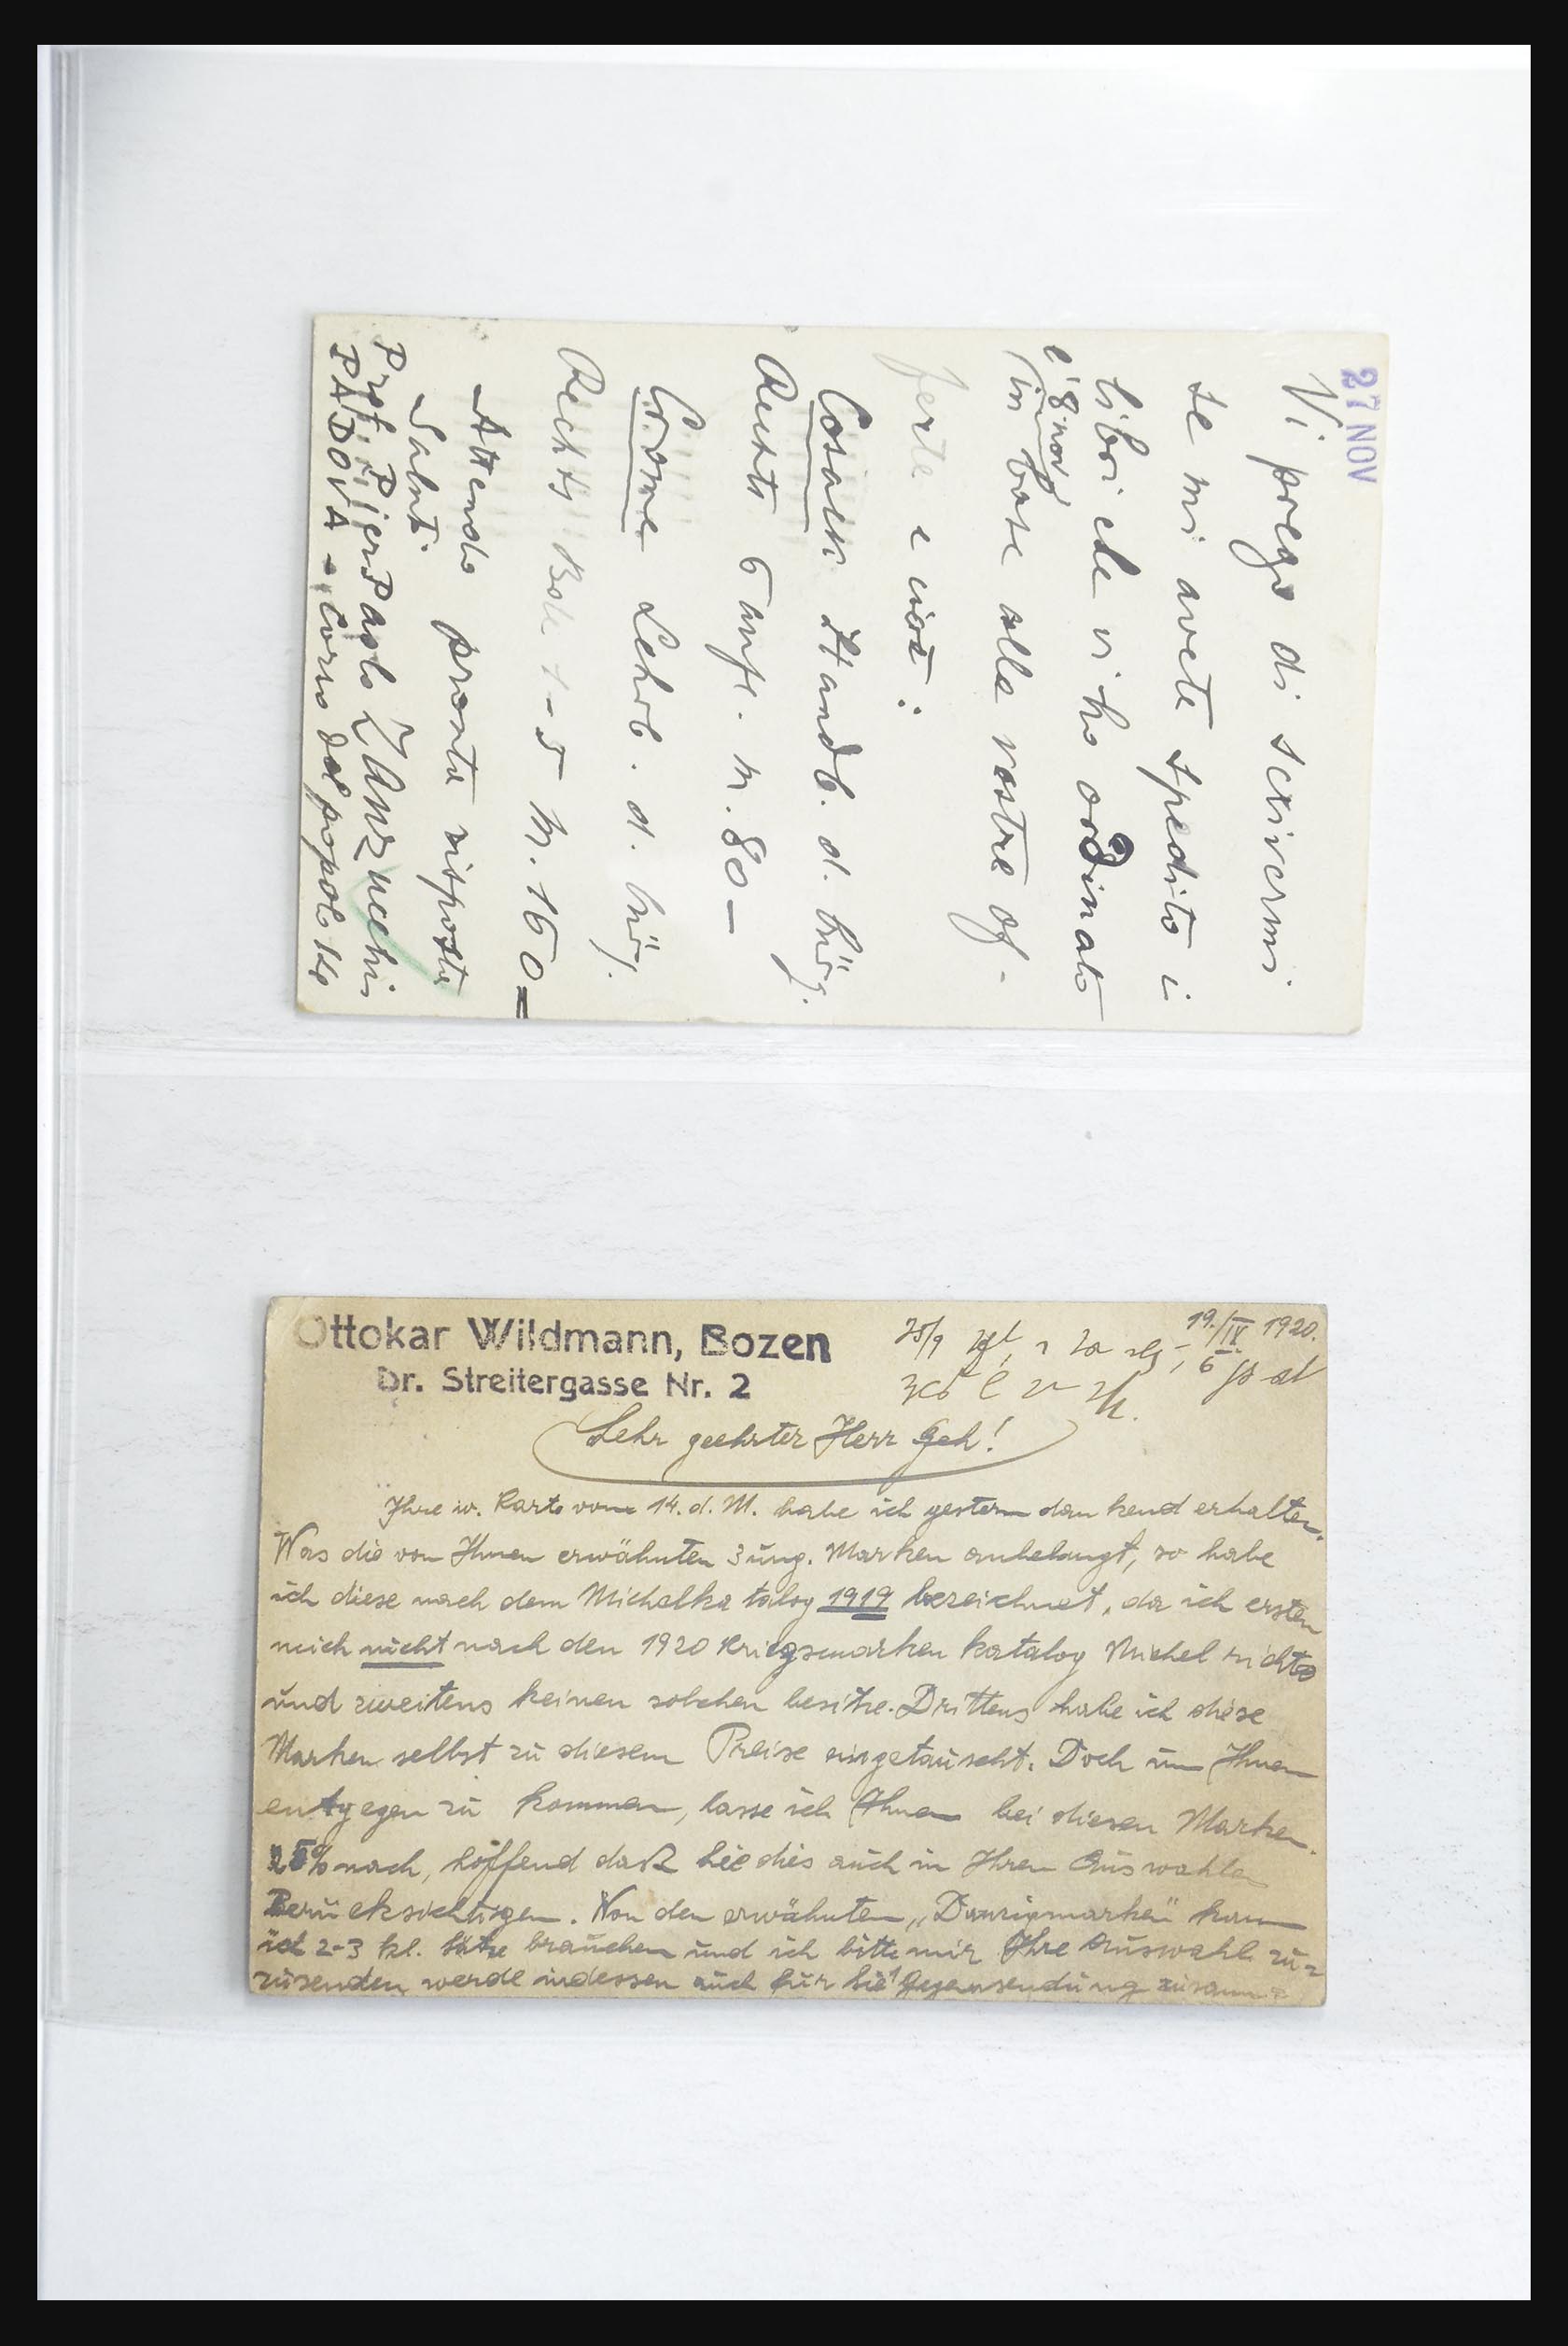 27 NOV
Vi prego di scrivermi
se mi avete spedito i
libri che vi ho ordinato
l'8 nov
(in base alle vostre of-
ferte e cioè:
Cosack Handb. d. bürg.
Rechts 6 aufl. M. 80 —
Crome Lehrb. d. bürg.
Rechts 1-5 M. 160 =
Attendo pronta risposta
Saluti
Prof. Pier Paolo Zanzucchi
PADOVA - Corso del popolo 14
Ottokar Wildmann, Bozen
Dr. Streitergasse Nr. 2
19./IX. 1920.
Sehr geehrter Herr Geh!
Ihre w. Karte vom 14. d. M. habe ich gestern dankend erhalten.
Was die von Ihnen erwähnten 3 ung. Marken anbelangt, so habe
ich diese nach dem Michelkatalog 1919 bezeichnet, da ich ersten
mich nicht nach den 1920 Kriegsmarken katalog Michel richte
und zweitens keinen solchen besitze. Drittens habe ich diese
Marken selbst zu diesem Preise eingetauscht. Doch um Ihnen
entgegen zu kommen, lasse ich Ihnen bei diesen Marken
25% nach, hoffend daß Sie dies auch in Ihren Auswahlen
Berücksichtigen. Von den erwähnten „Danzigmarken" kann
ich 2-3 kl. Sätze brauchen und ich bitte mir Ihre Auswahl zu=
zusenden, werde indessen auch für Sie Gegensendung